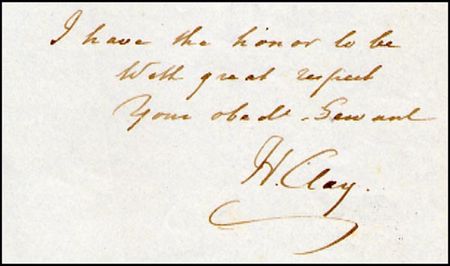 I have the honor to be
With great respect
Your obedt. Servant
H. Clay.